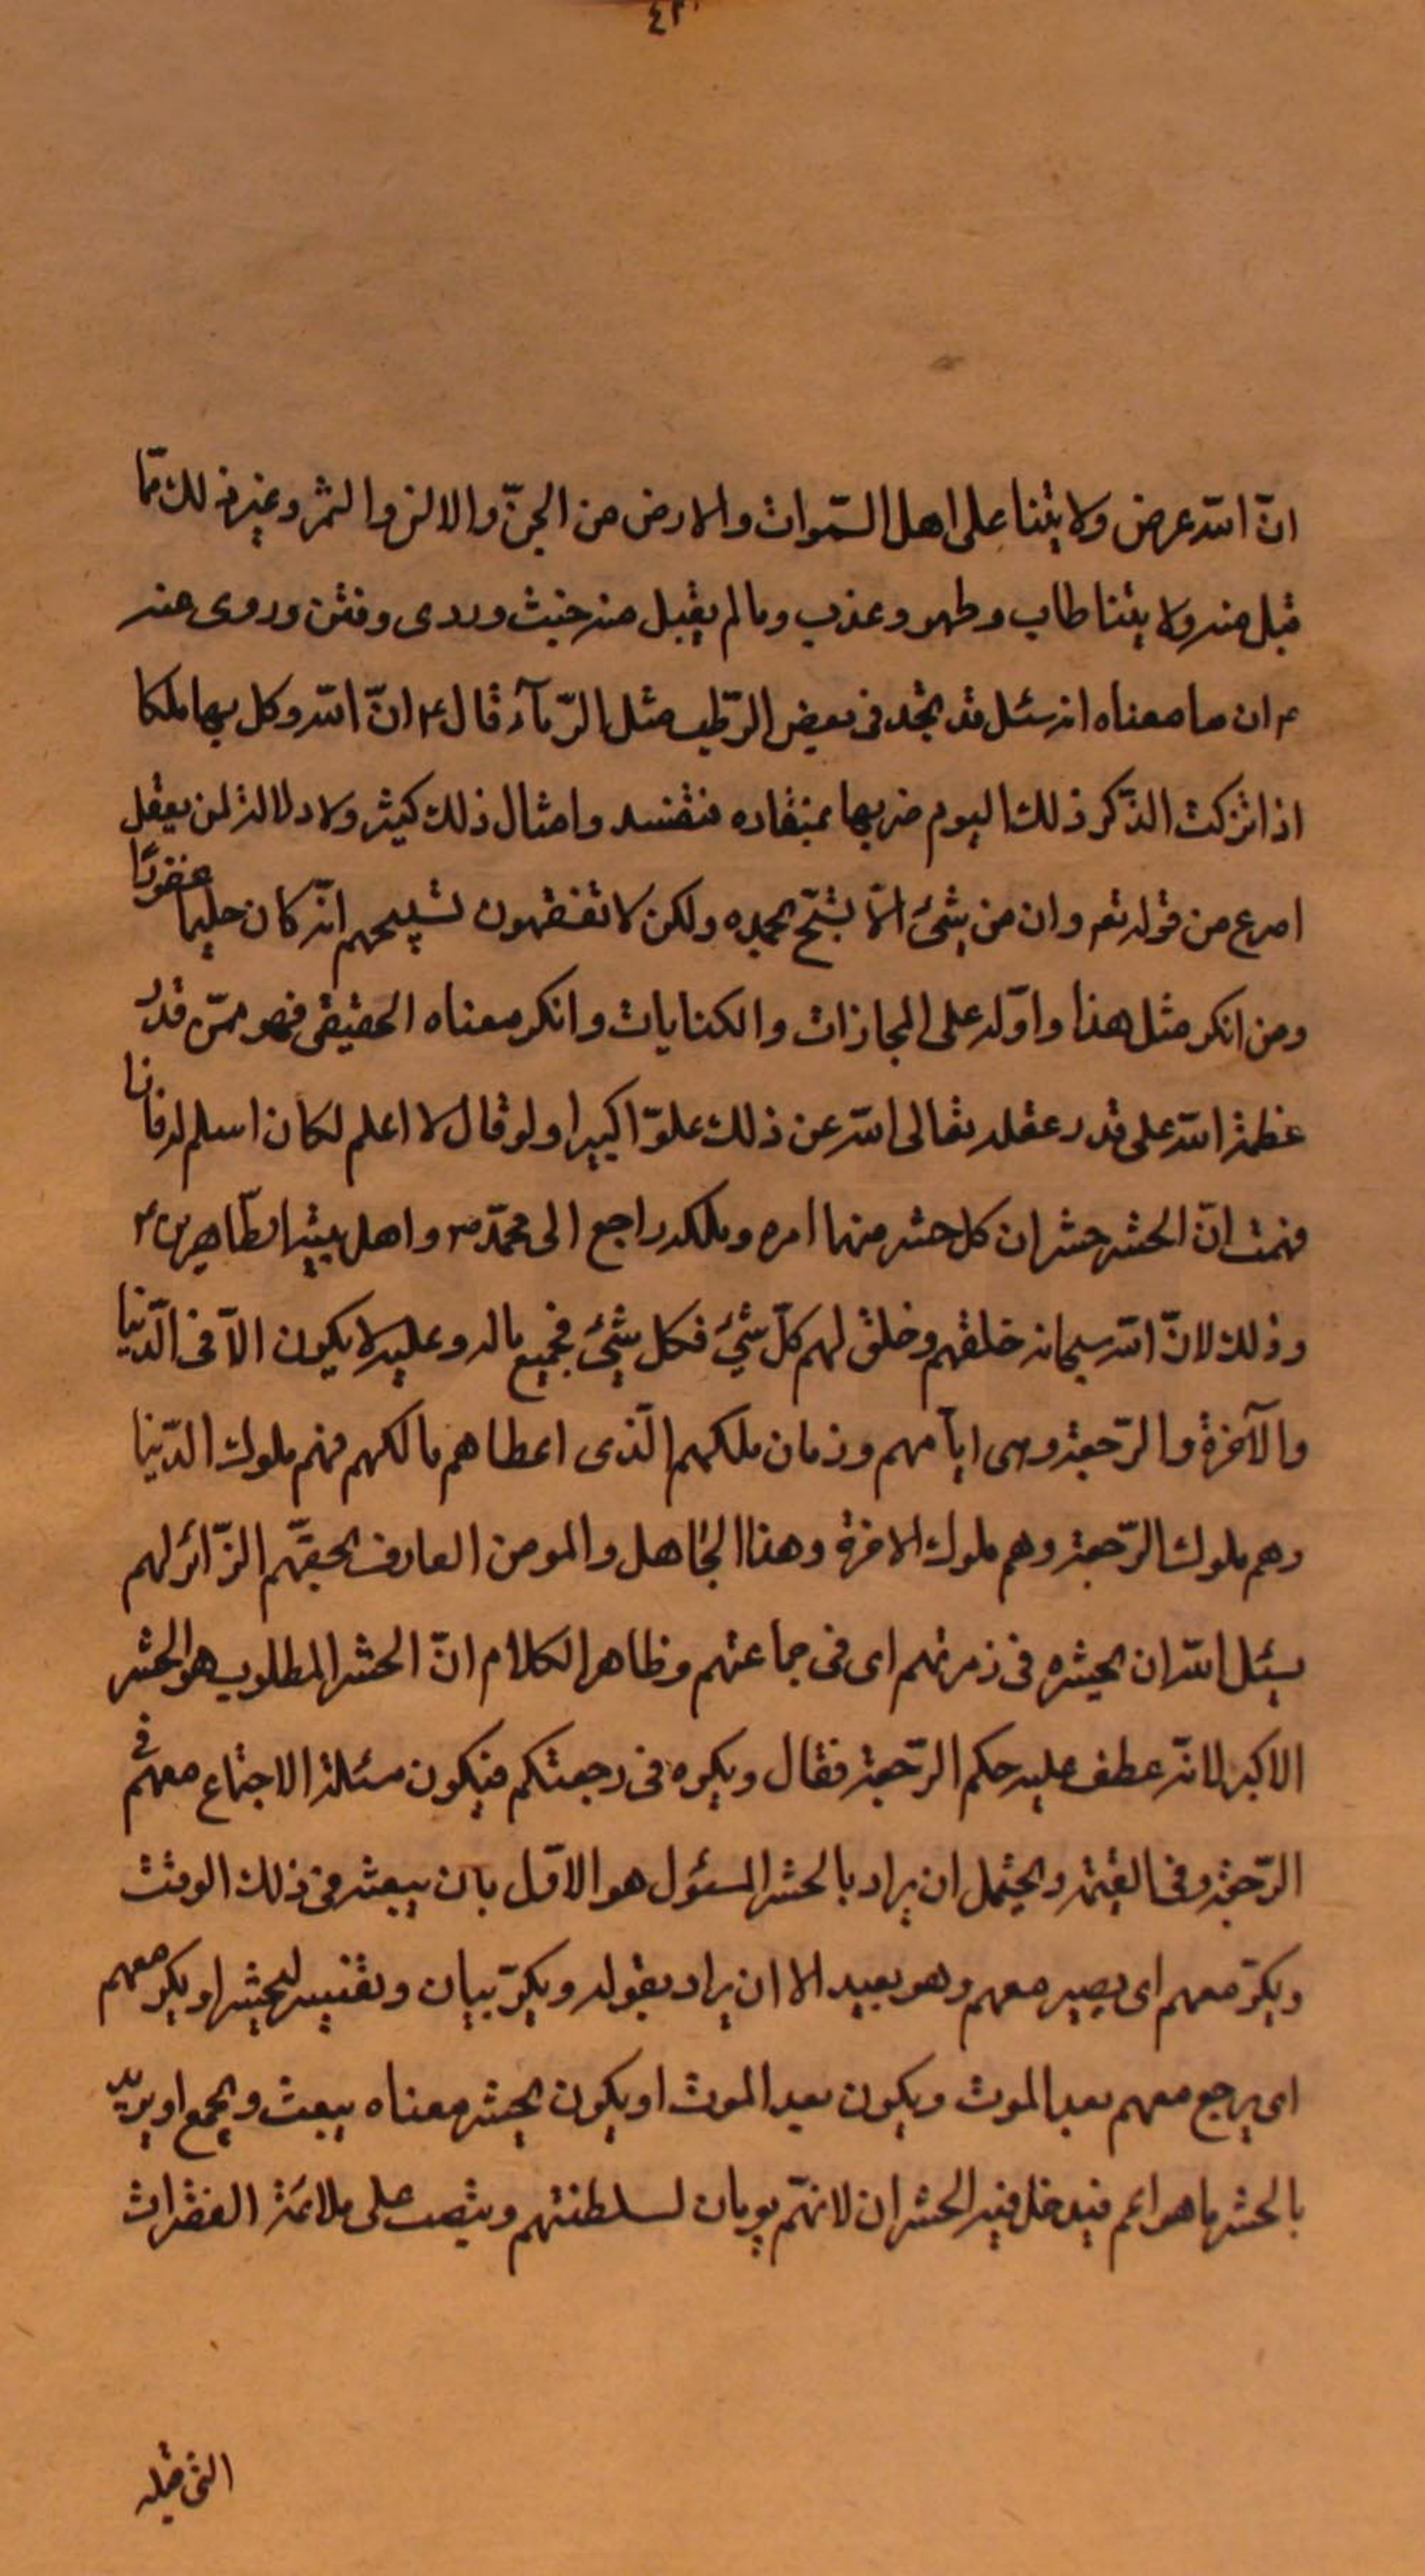 انّ الله عرض ولايتنا على اهل السّموات والارض من الجنّ والانس والثمر وغير ذلك ممّا
قبل منه ولايتنا طاب وطهر وعذب وما لم يقبل منه خبث وردى ونتن وروى عنه
ع ان ما معناه انه سئل قد تجد فى بعض الرّطب مثل الرّماد قال ع انّ الله وكل بها ملكا
اذا تركت الذّكر ذلك اليوم ضربها بمنقاره فتفسد وامثال ذلك كثير ولا دلالة لمن يعقل
اصرع من قوله تعم وان من شئ الّا يسبّح بحمده ولكن لا تفقهون تسبيحهم انّه كان حليما غفورًا
ومن انكر مثل هذا واوّله على المجازات والكنايات وانكر معناه الحقيقى فهو ممّن قدّر
عظمة الله على قدر عقله تعالى الله عن ذلك علوّا كبيرا ولو قال لا اعلم لكان اسلم له فاذا
فهمت انّ الحشر حشران كل حشر منهما امره وملكه راجع الى محمّد ص واهل بيته الطّاهرين ع
وذلك لانّ الله سبحانه خلقهم وخلق لهم كلّ شئ فكل شئ فجميع ماله وعليه لا يكون الّا فى الدّنيا
والآخرة والرّجعة وهى ايّامهم وزمان ملكهم الّذى اعطاهم مالكهم فهم ملوك الدّنيا
وهم ملوك الرّجعة وهم ملوك الاخرة وهذا الجاهل والمومن العارف بحقّهم الزّائر لهم
يسئل الله ان يحشره فى زمرتهم اى فى جماعتهم وظاهر الكلام انّ الحشر المطلوب هو الحشر
الاكبر لانّه عطف عليه حكم الرّجعة فقال ويكره فى رجعتكم فيكون مسئلة الاجتماع معهم فى
الرّجعة وفى القيمة ويحتمل ان يراد بالحشر المسئول هو الاوّل بان يبعث فى ذلك الوقت
ويكرّ معهم اى يصير معهم وهو بعيد الا ان يراد بقوله ويكرّ بيان وتفسير ليحشر او يكر معهم
اى يرجع معهم بعد الموت ويكون بعد الموت او يكون يحشر معناه يبعث ويجمع او يريد
بالحشر ما هو اعم فيدخل فيه الحشران لانهّم يومان لسلطنتهم وينصت على ملائمة الفقرات
التى قبله